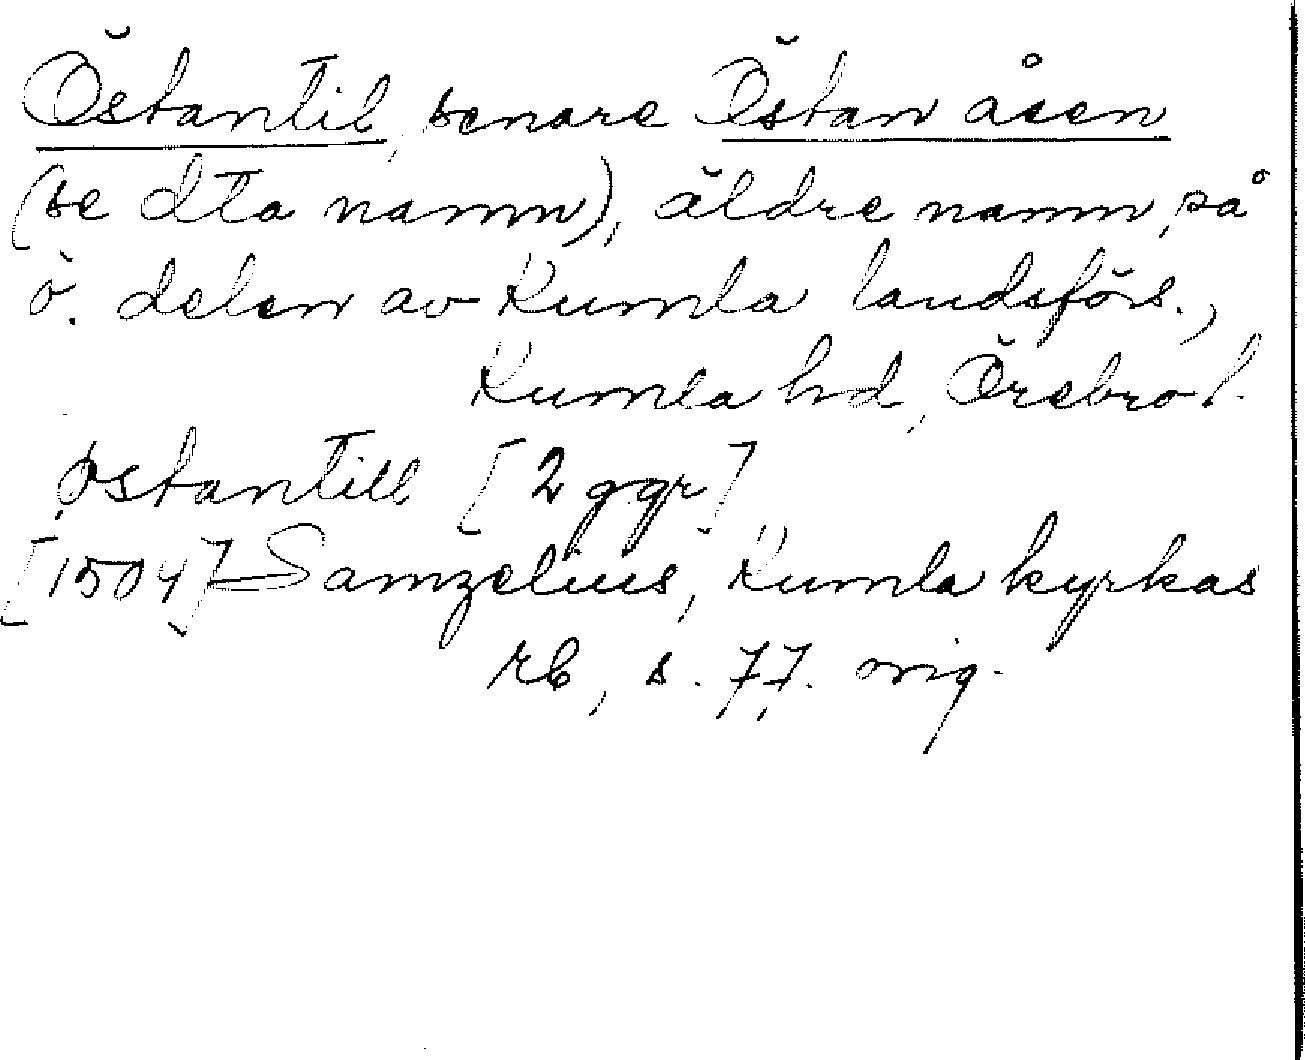 Östantil, senare Östan åsen
(se dta namn), äldre namn på
ö. delen av Kumla landsförs.,
Kumla hd, Örebro l.
østantill [2 ggr]
[1504] Samzelius, Kumla kyrkas
rb, s. 77. orig.